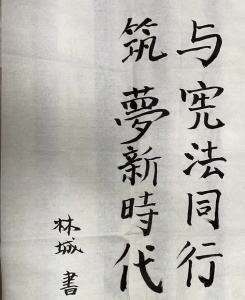 与宪法同行
筑夢新時代
林城 書